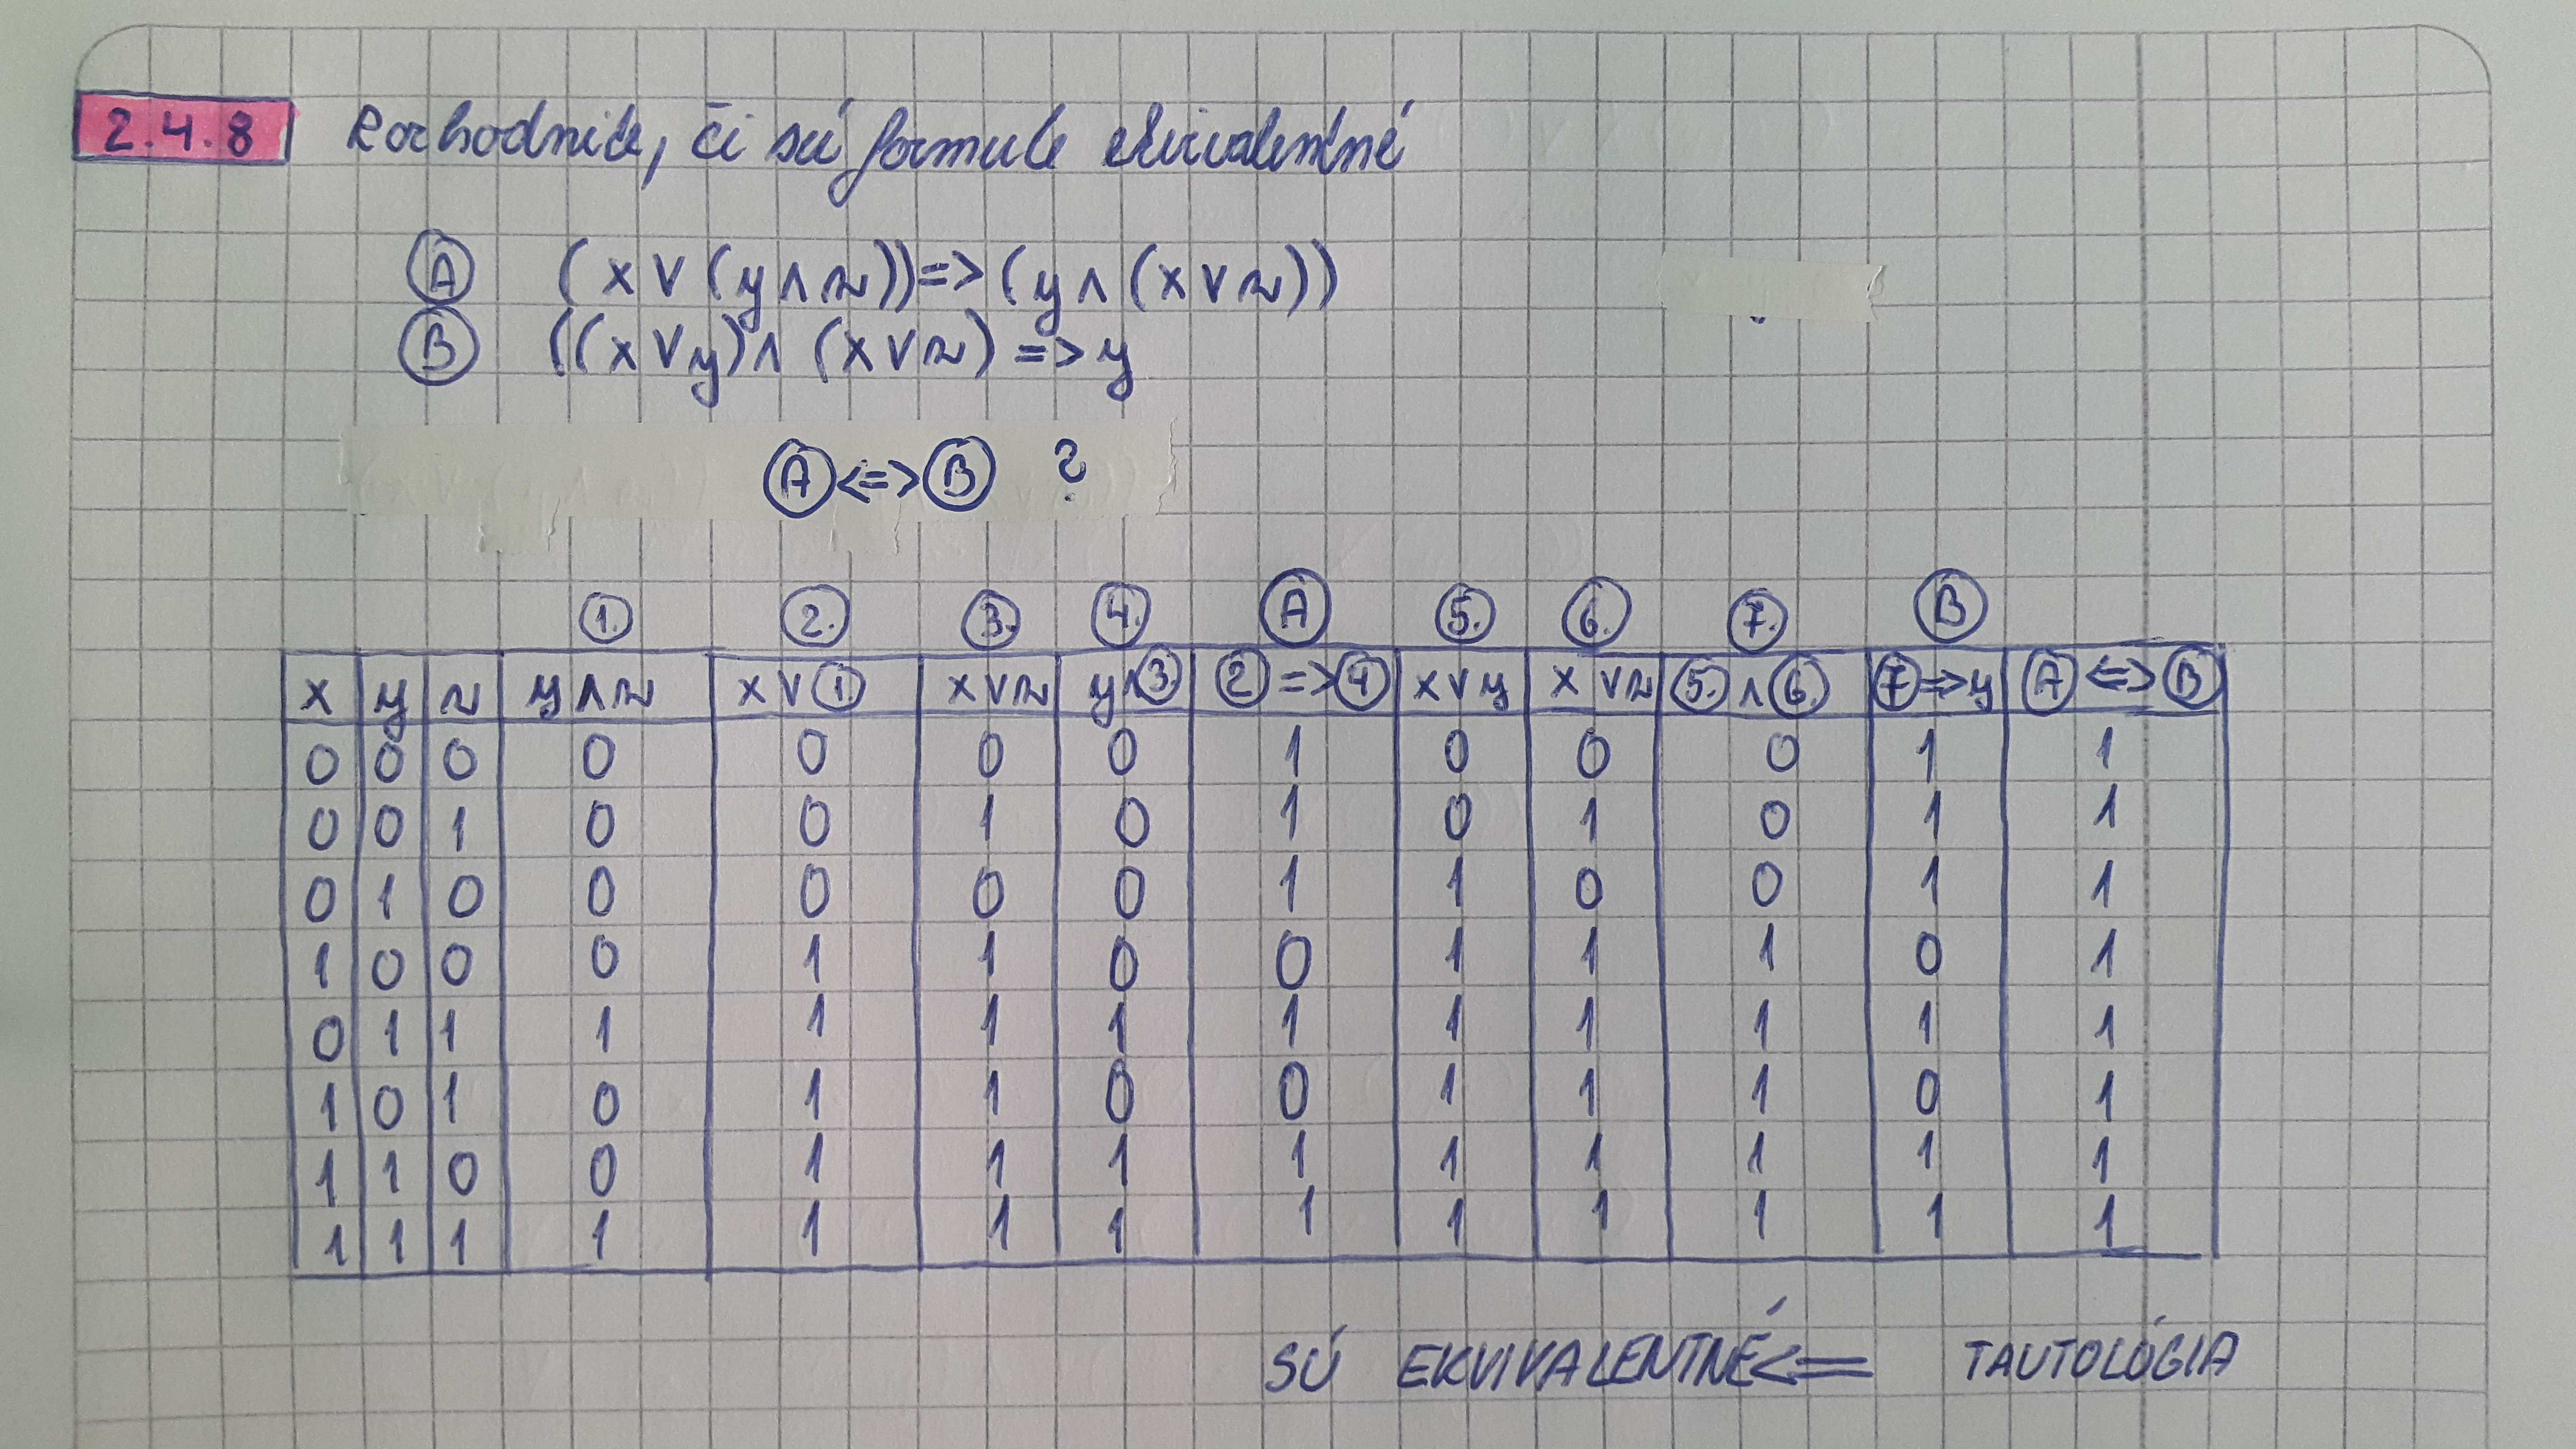 2.4.8 Rozhodnite, či sú formule ekvivalentné
Ⓐ (x ∨ (y ∧ z)) => (y ∧ (x ∨ z))
Ⓑ ((x ∨ y) ∧ (x ∨ z) => y
Ⓐ <=> Ⓑ ?
1. 2. 3. 4. Ⓐ 5. 6. 7. Ⓑ
x y z y ∧ z x ∨ 1. x ∨ z y ∧ 3. 2 => 4 x ∨ y x ∨ z 5. ∧ 6. 7 => y Ⓐ <=> Ⓑ
0 0 0 0 0 0 0 1 0 0 0 1 1
0 0 1 0 0 1 0 1 0 1 0 1 1
0 1 0 0 0 0 0 1 1 0 0 1 1
1 0 0 0 1 1 0 0 1 1 1 0 1
0 1 1 1 1 1 1 1 1 1 1 1 1
1 0 1 0 1 1 0 0 1 1 1 0 1
1 1 0 0 1 1 1 1 1 1 1 1 1
1 1 1 1 1 1 1 1 1 1 1 1 1
SÚ EKVIVALENTNÉ <= TAUTOLÓGIA